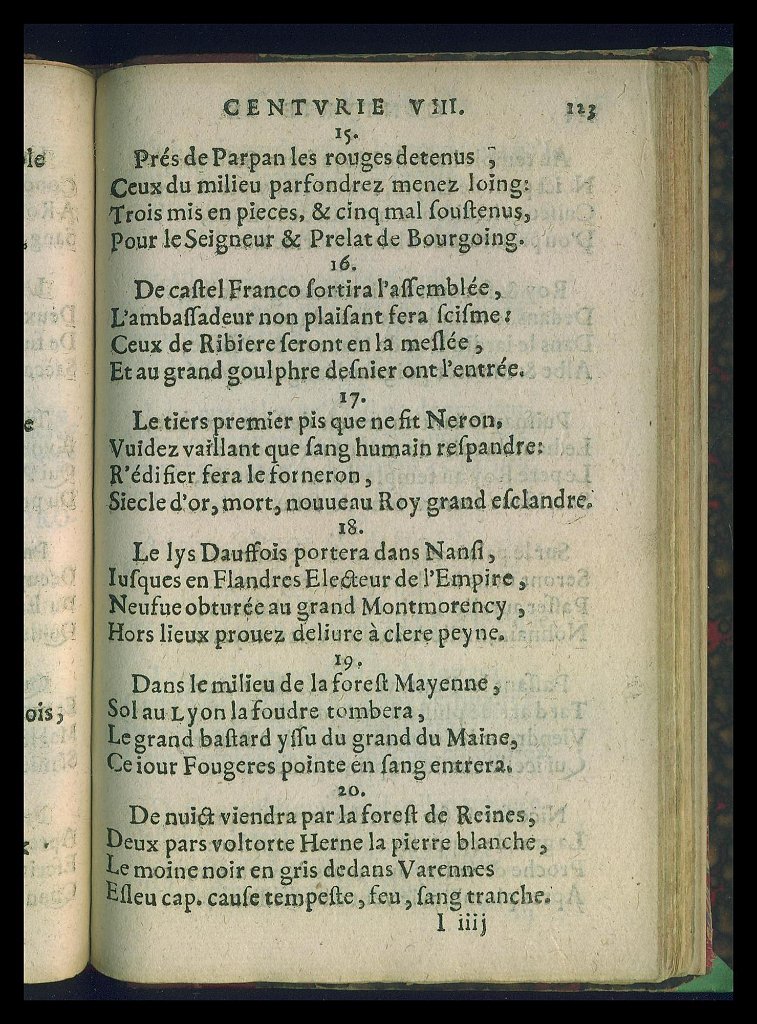 CENTVRIE VIII. 123
15.
Prés de Parpan les rouges detenus ,
Ceux du milieu parfondrez menez loing:
Trois mis en pieces, & cinq mal souſtenus,
Pour le Seigneur & Prelat de Bourgoing.
16.
De caſtel Franco ſortira l'aſſemblée,
L'ambaſſadeur non plaiſant fera ſciſme:
Ceux de Ribiere ſeront en la meſlée,
Et au grand goulphre deſnier ont l'entrée.
17.
Le tiers premier pis que ne fit Neron,
Vuidez vaillant que ſang humain reſpandre:
R'édifier fera le forneron,
Siecle d'or, mort, nouueau Roy grand eſclandre.
18.
Le lys Dauffois portera dans Nanſi,
Iuſques en Flandres Electeur de l'Empire,
Neufue obturée au grand Montmorency ,
Hors lieux prouez deliure à clere peyne.
19.
Dans le milieu de la foreſt Mayenne,
Sol au Lyon la foudre tombera,
Le grand baſtard yſſu du grand du Maine,
Ce iour Fougeres pointe en ſang entrera.
20.
De nuict viendra par la foreſt de Reines,
Deux pars voltorte Herne la pierre blanche,
Le moine noir en gris dedans Varennes
Eſleu cap. cauſe tempeſte, feu, ſang tranche.
I iiij